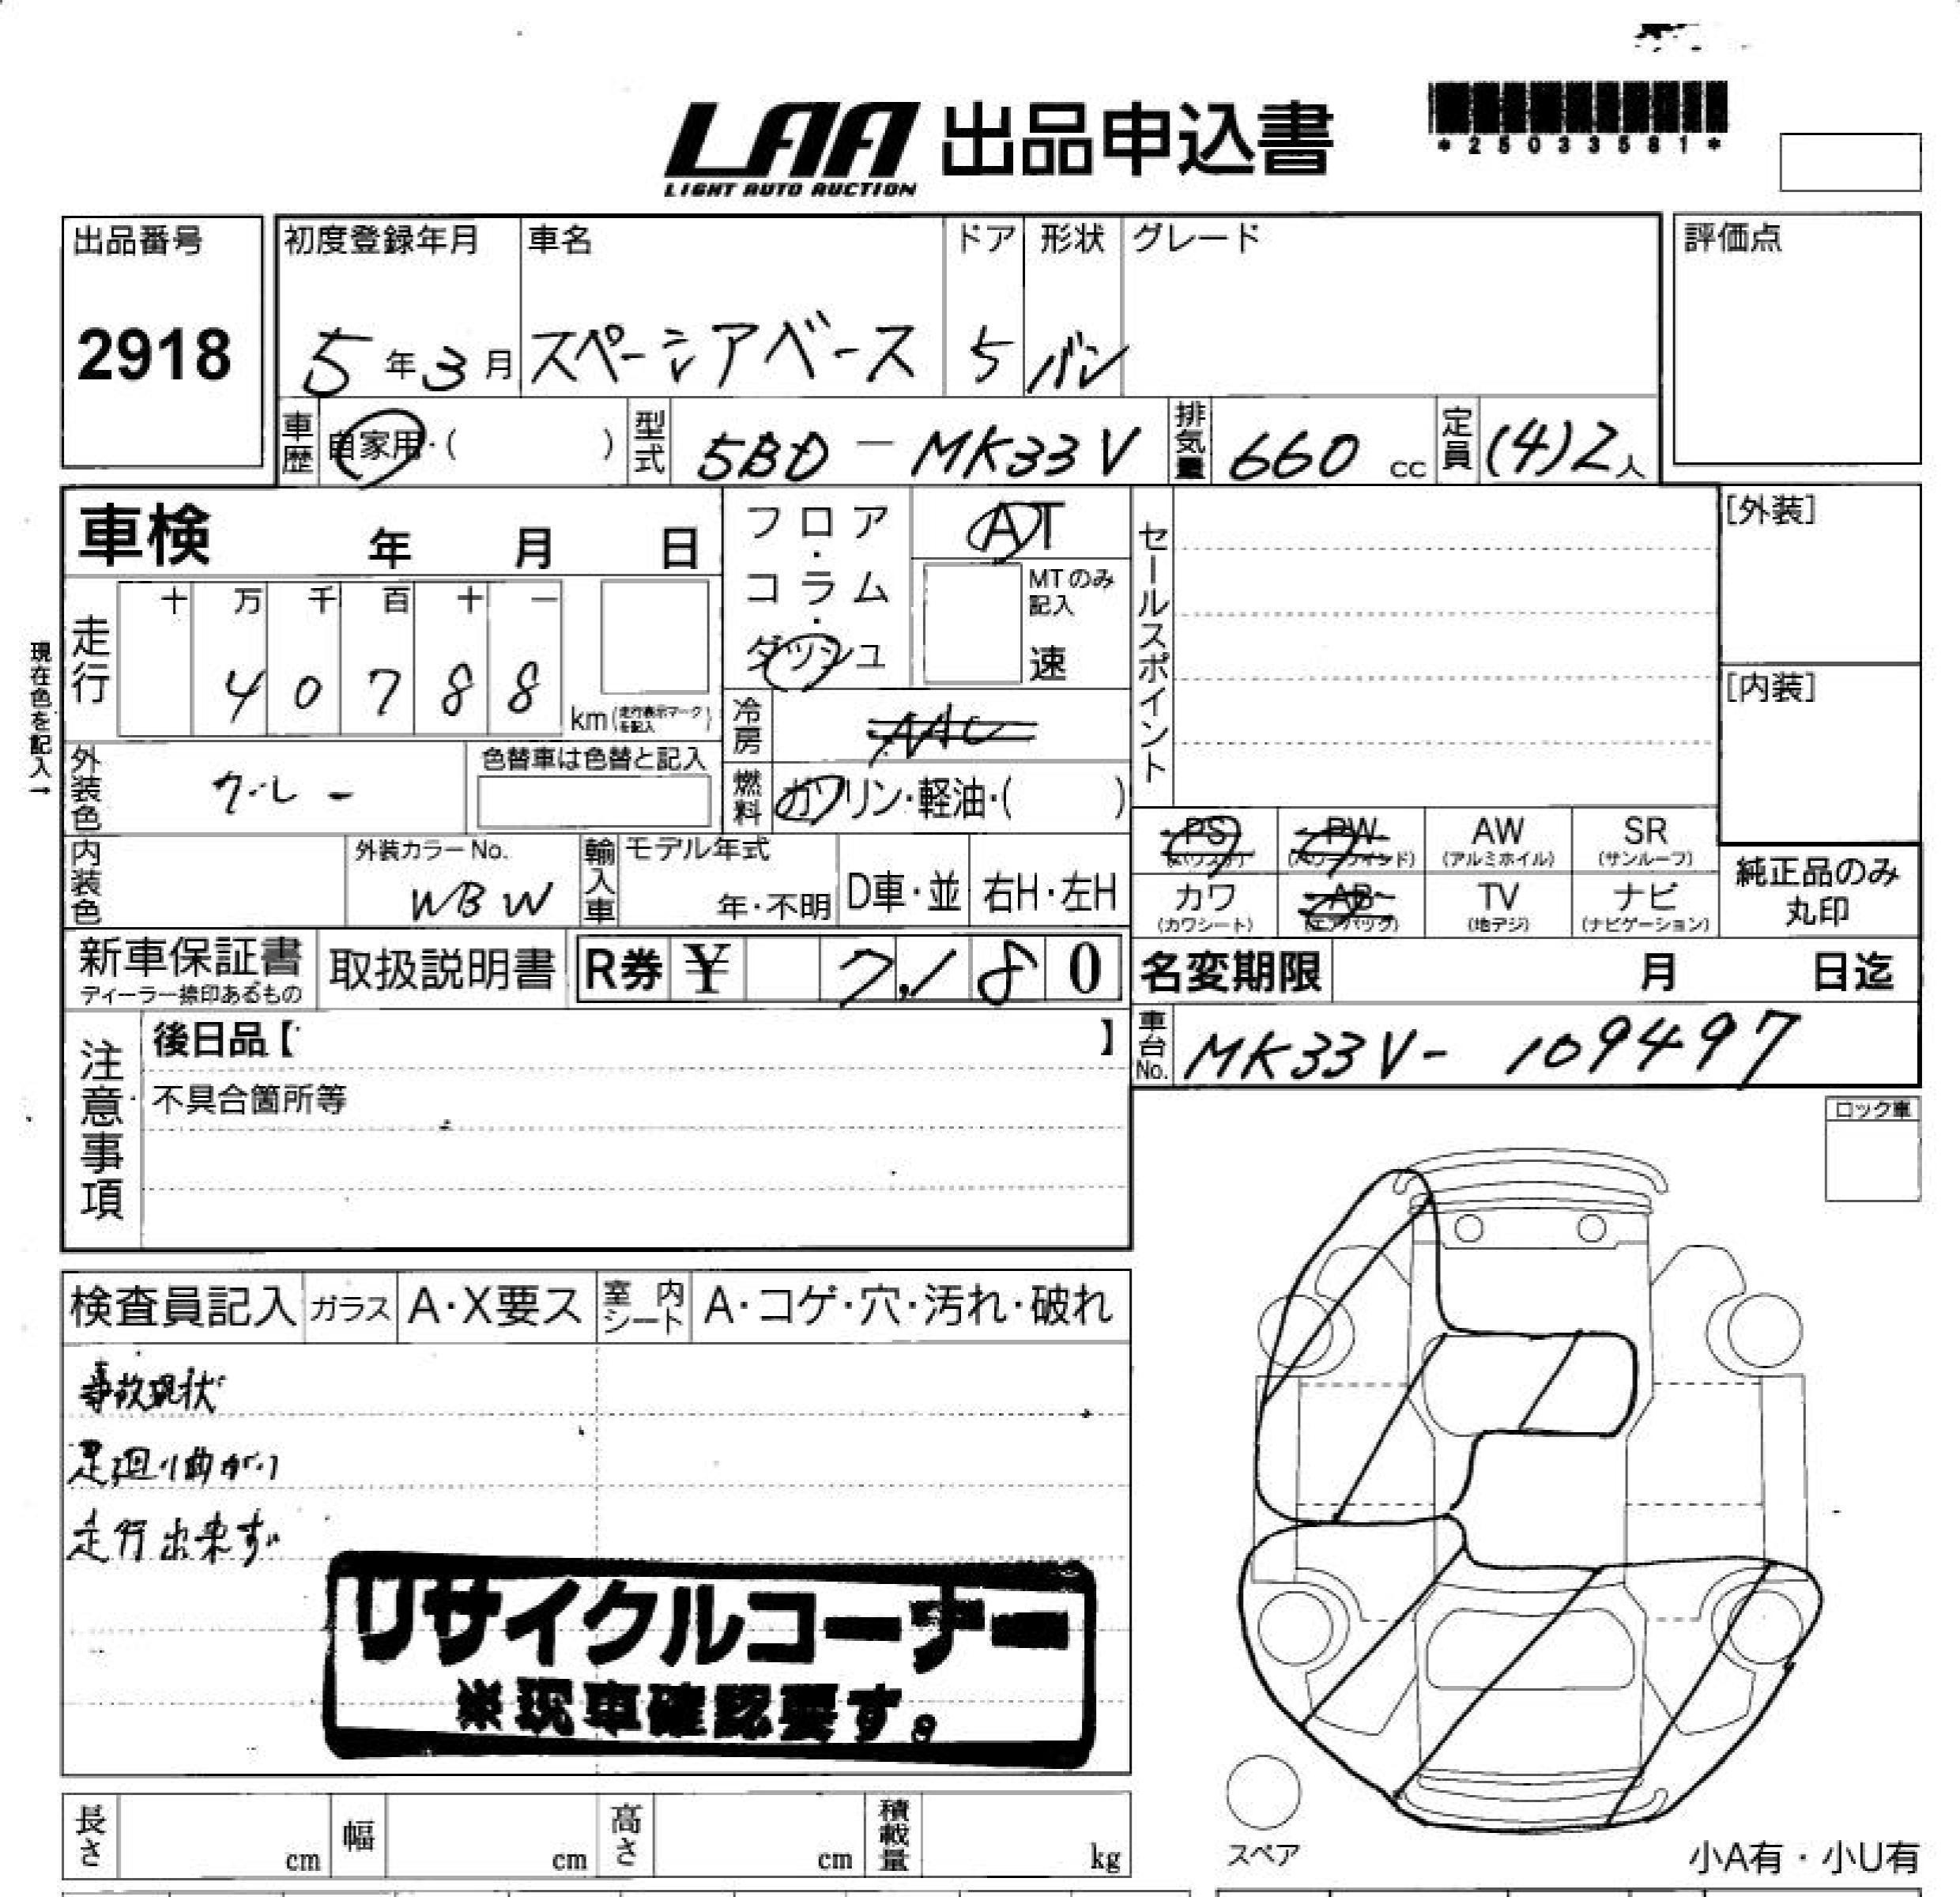 LAA 出品申込書
LIGHT AUTO AUCTION
*25033581*
出品番号
2918
初度登録年月
5年3月
車名
スペーシアベース
ドア
5
形状
バン
グレード
評価点
車歴
自家用・( )
型式
5BD-MK33V
排気量
660 cc
定員
(4)2人
車検 年 月 日
フロア・コラム・ダッシュ
AT
MTのみ記入
速
セールスポイント
[外装]
[内装]
現在色を記入→
走行
十 万 千 百 十 一
4 0 7 8 8
km(走行表示マークを記入)
冷房
AAC
燃料
ガソリン・軽油・( )
外装色
グレー
色替車は色替と記入
内装色
外装カラーNo.
WBW
輸入車
モデル年式
年・不明
D車・並
右H・左H
PS PW AW SR
(パワステ) (パワーウィンド) (アルミホイル) (サンルーフ)
カワ AB TV ナビ
(カワシート) (エアバッグ) (地デジ) (ナビゲーション)
純正品のみ
丸印
新車保証書
ディーラー捺印あるもの
取扱説明書
R券 ¥ 7,180
名変期限 月 日迄
車台No.
MK33V-109497
注意事項
後日品【 】
不具合箇所等
ロック車
検査員記入
ガラス
A・X要ス
室内シート
A・コゲ・穴・汚れ・破れ
事故現状
足廻り曲がり
走行出来ず
リサイクルコーナー
※現車確認要す。
長さ cm
幅 cm
高さ cm
積載量 kg
スペア
小A有・小U有